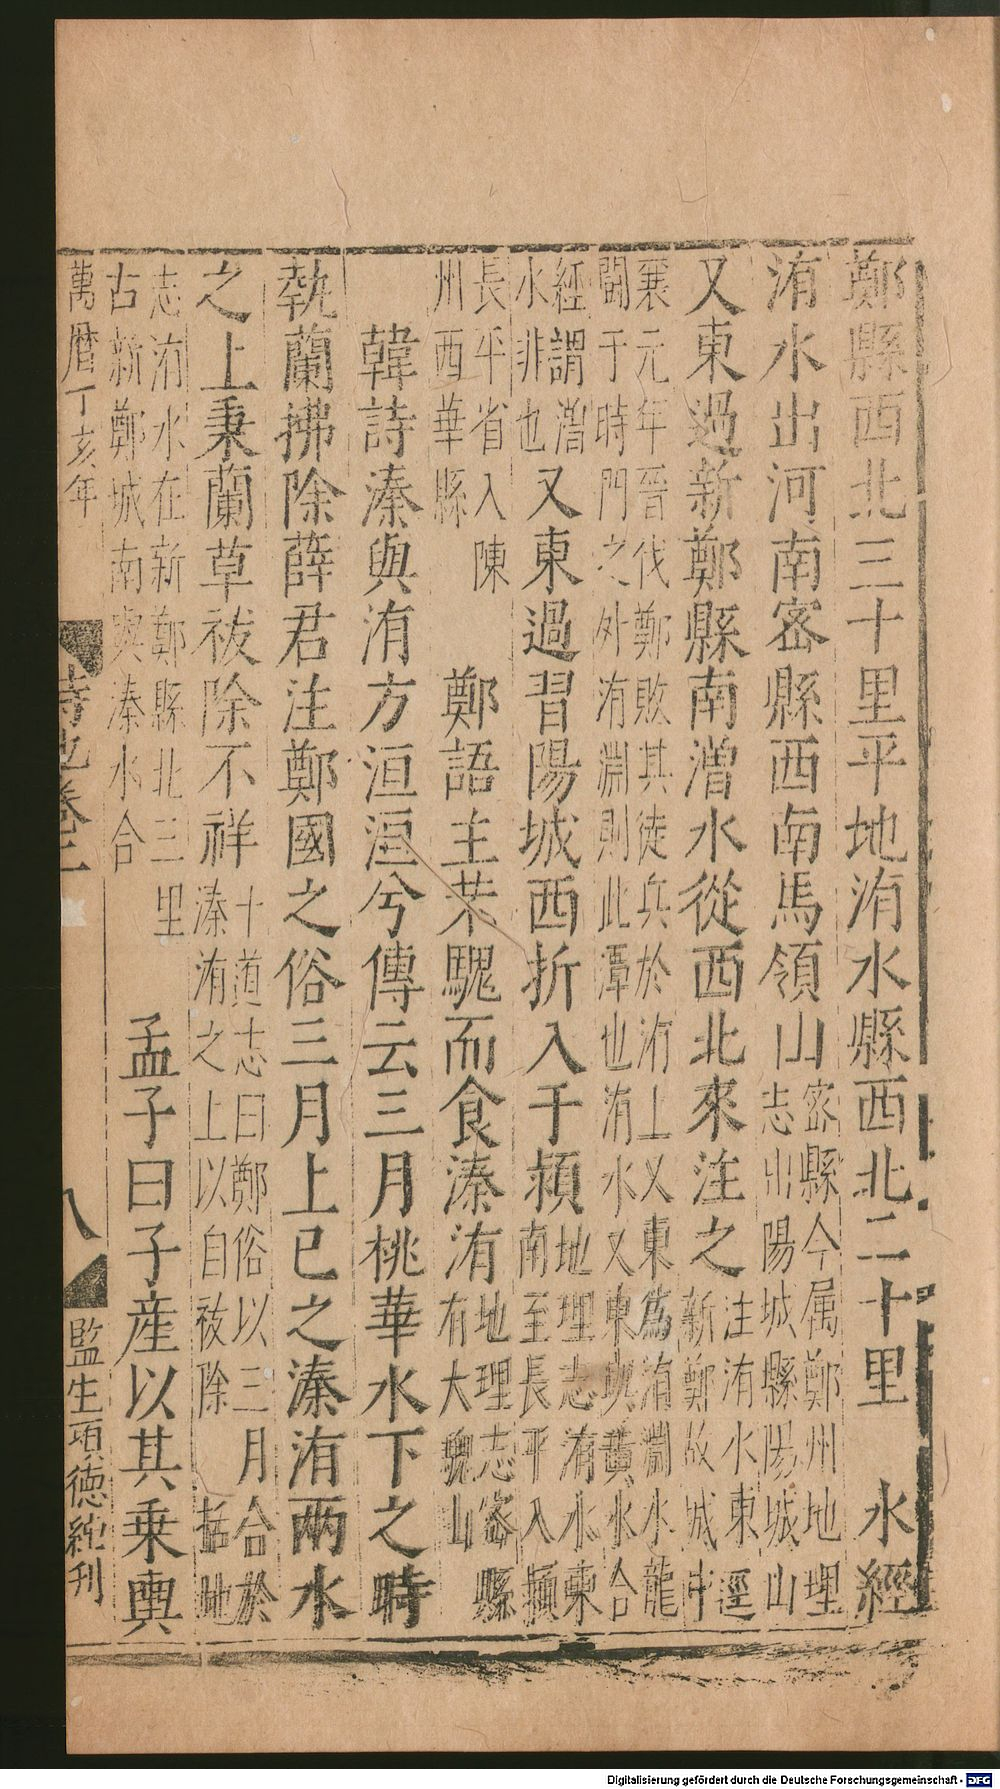 鄭縣西北三十里平地洧水縣西北二十里　水經
洧水出河南密縣西南馬領山密縣今属鄭州地理
志出陽城縣陽城山
又東過新鄭縣南潧水從西北來注之注洧水東逕
新鄭故城中
襄元年晉伐鄭敗其徒兵於洧上又東為洧淵水龍
鬪于時門之外洧淵則此潭也洧水又東與黃水合
經謂潧
水非也又東過習陽城西折入于潁地理志洧水東
南至長平入潁
長平省入陳
州西華縣　鄭語主芣騩而食溱洧地理志密縣
有大騩山
韓詩溱與洧方洹洹兮傳云三月桃華水下之時
執蘭拂除薛君注鄭國之俗三月上巳之溱洧兩水
之上秉蘭草祓除不祥十道志曰鄭俗以三月合於
溱洧之上以自祓除　括地
志洧水在新鄭縣北三里
古新鄭城南與溱水合　孟子曰子産以其乗輿
萬曆丁亥年
詩地卷二
八
監生項德紀刊
Digitalisierung gefördert durch die Deutsche Forschungsgemeinschaft - DFG